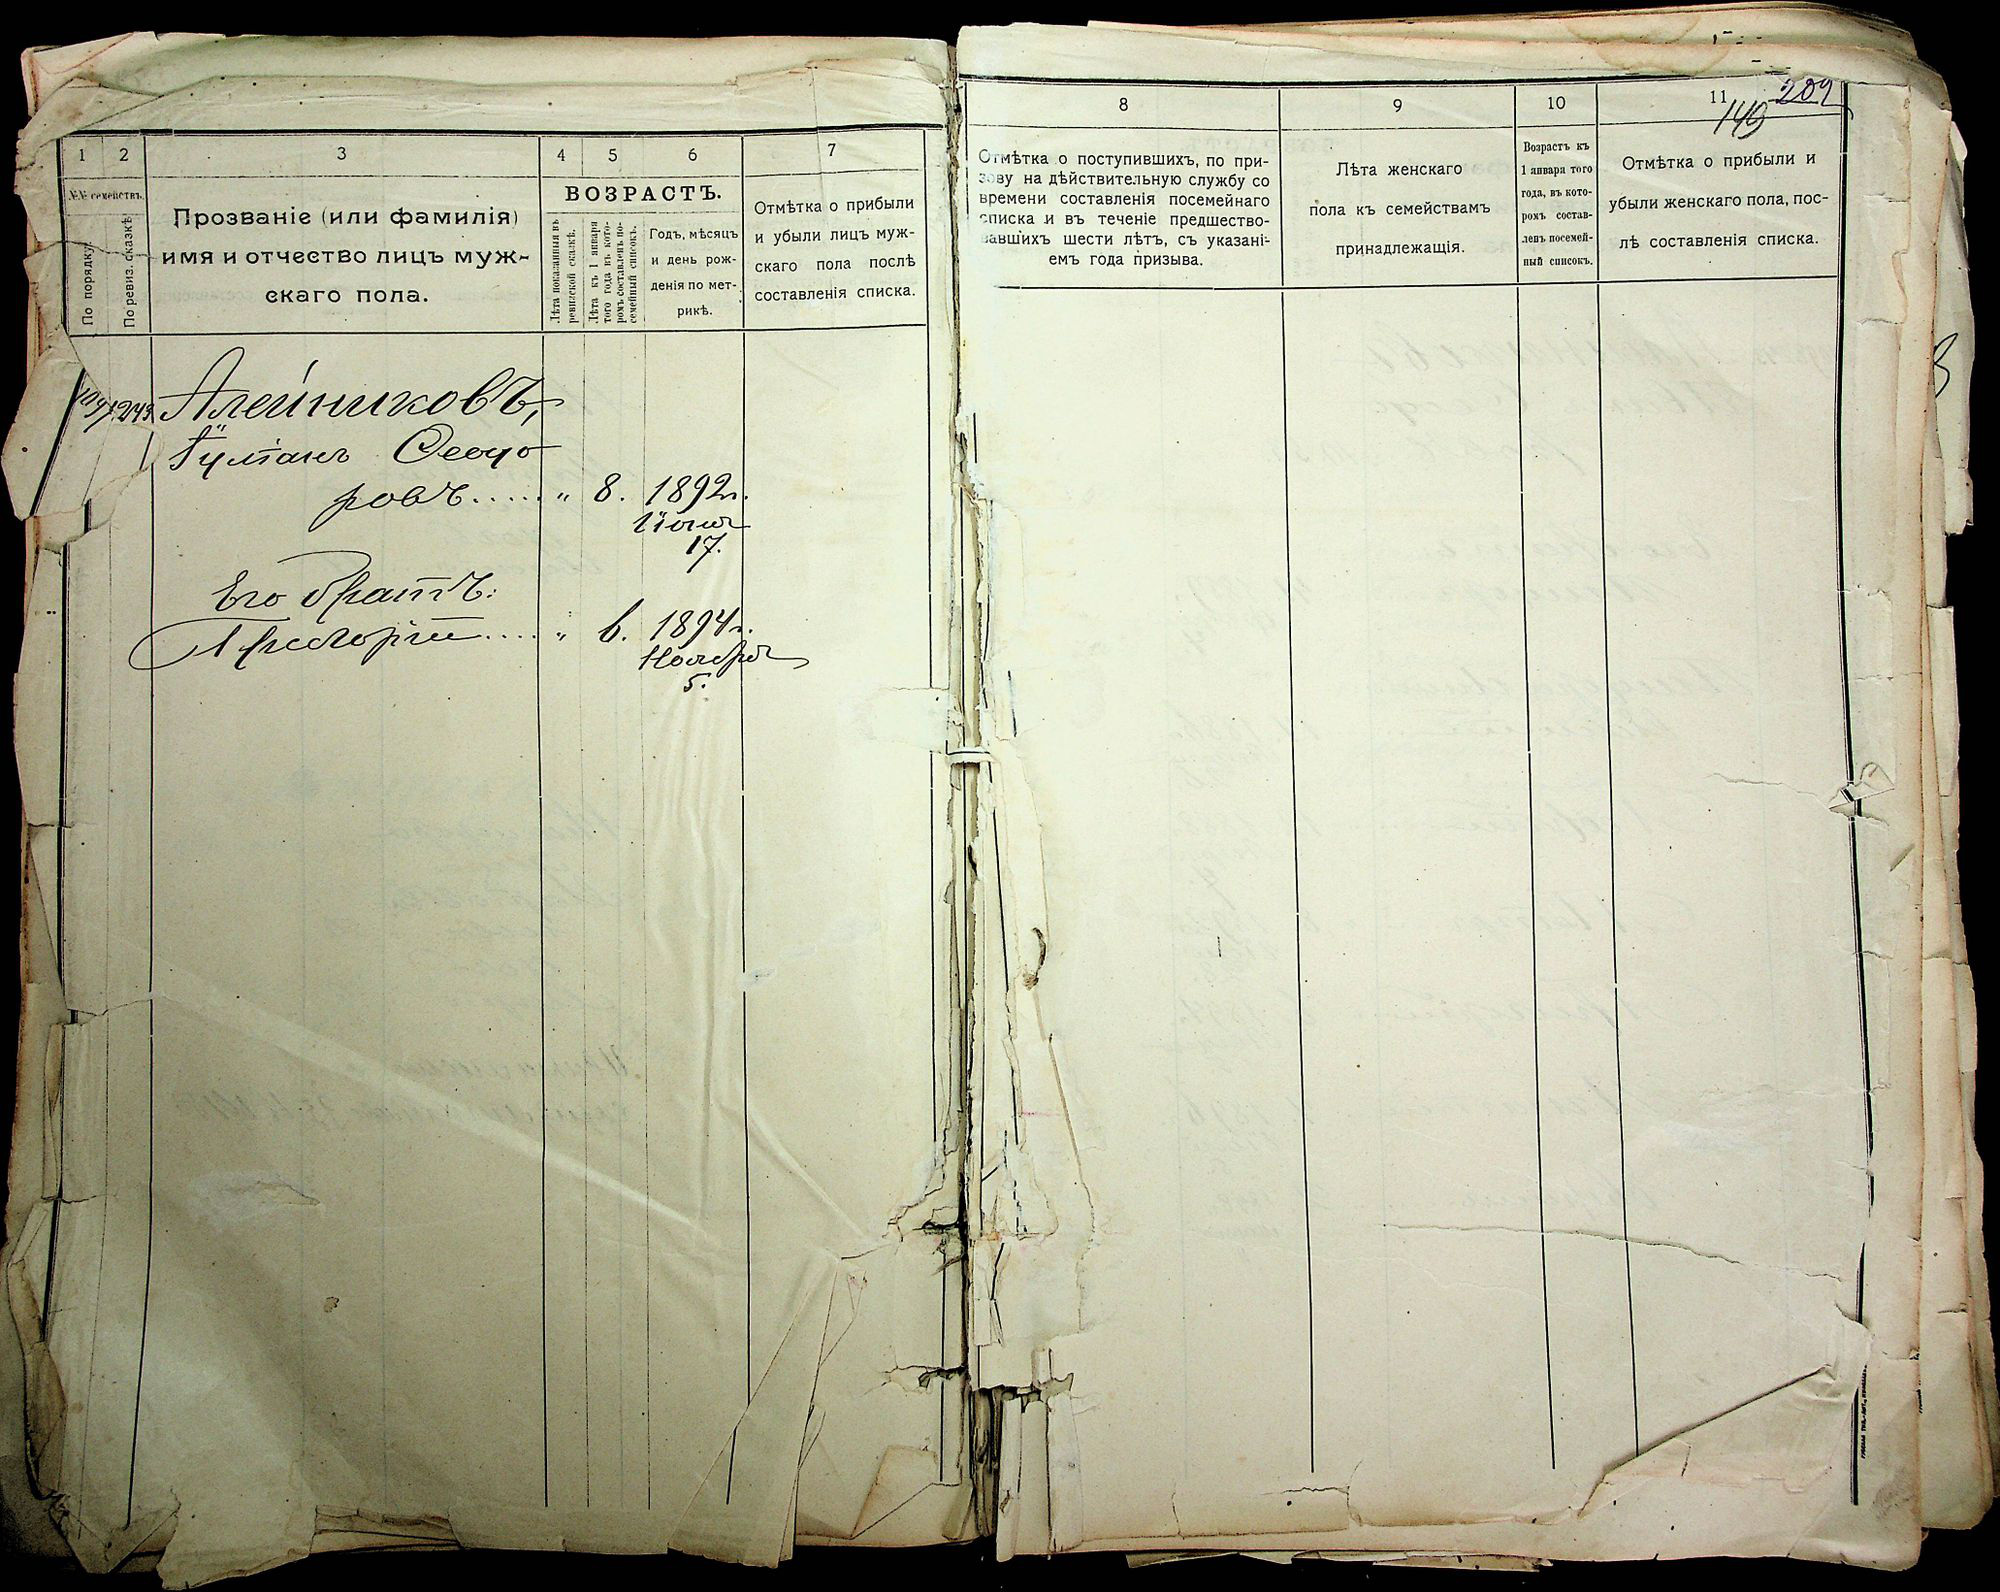 1
2
3
4
5
6
7
№№ семействъ.
По порядку.
По ревиз. сказкѣ
Прозваніе (или фамилія)
имя и отчество лицъ муж-
скаго пола.
ВОЗРАСТЪ.
Лѣта показанныя въ
ревизской сказкѣ.
Лѣта къ 1 января
того года въ кото-
ромъ составленъ по-
семейный списокъ.
Годъ, мѣсяцъ
и день рож-
денія по мет-
рикѣ.
Отмѣтка о прибыли
и убыли лицъ муж-
скаго пола послѣ
составленія списка.
243
Алейниковъ,
Ѳеодо
ровъ..... „ 8. 1892г.
Іюня
17.
Его братъ:
Григорій.... „ 6. 1894г.
Ноября
5.
8
9
10
11
209
149
Отмѣтка о поступившихъ, по при-
зыву на дѣйствительную службу со
времени составленія посемейнаго
списка и въ теченіе предшество-
вавшихъ шести лѣтъ, съ указані-
емъ года призыва.
Лѣта женскаго
пола къ семействамъ
принадлежащія.
Возрастъ къ
1 января того
года, въ кото-
ромъ состав-
ленъ посемей-
ный списокъ.
Отмѣтка о прибыли и
убыли женскаго пола, пос-
лѣ составленія списка.